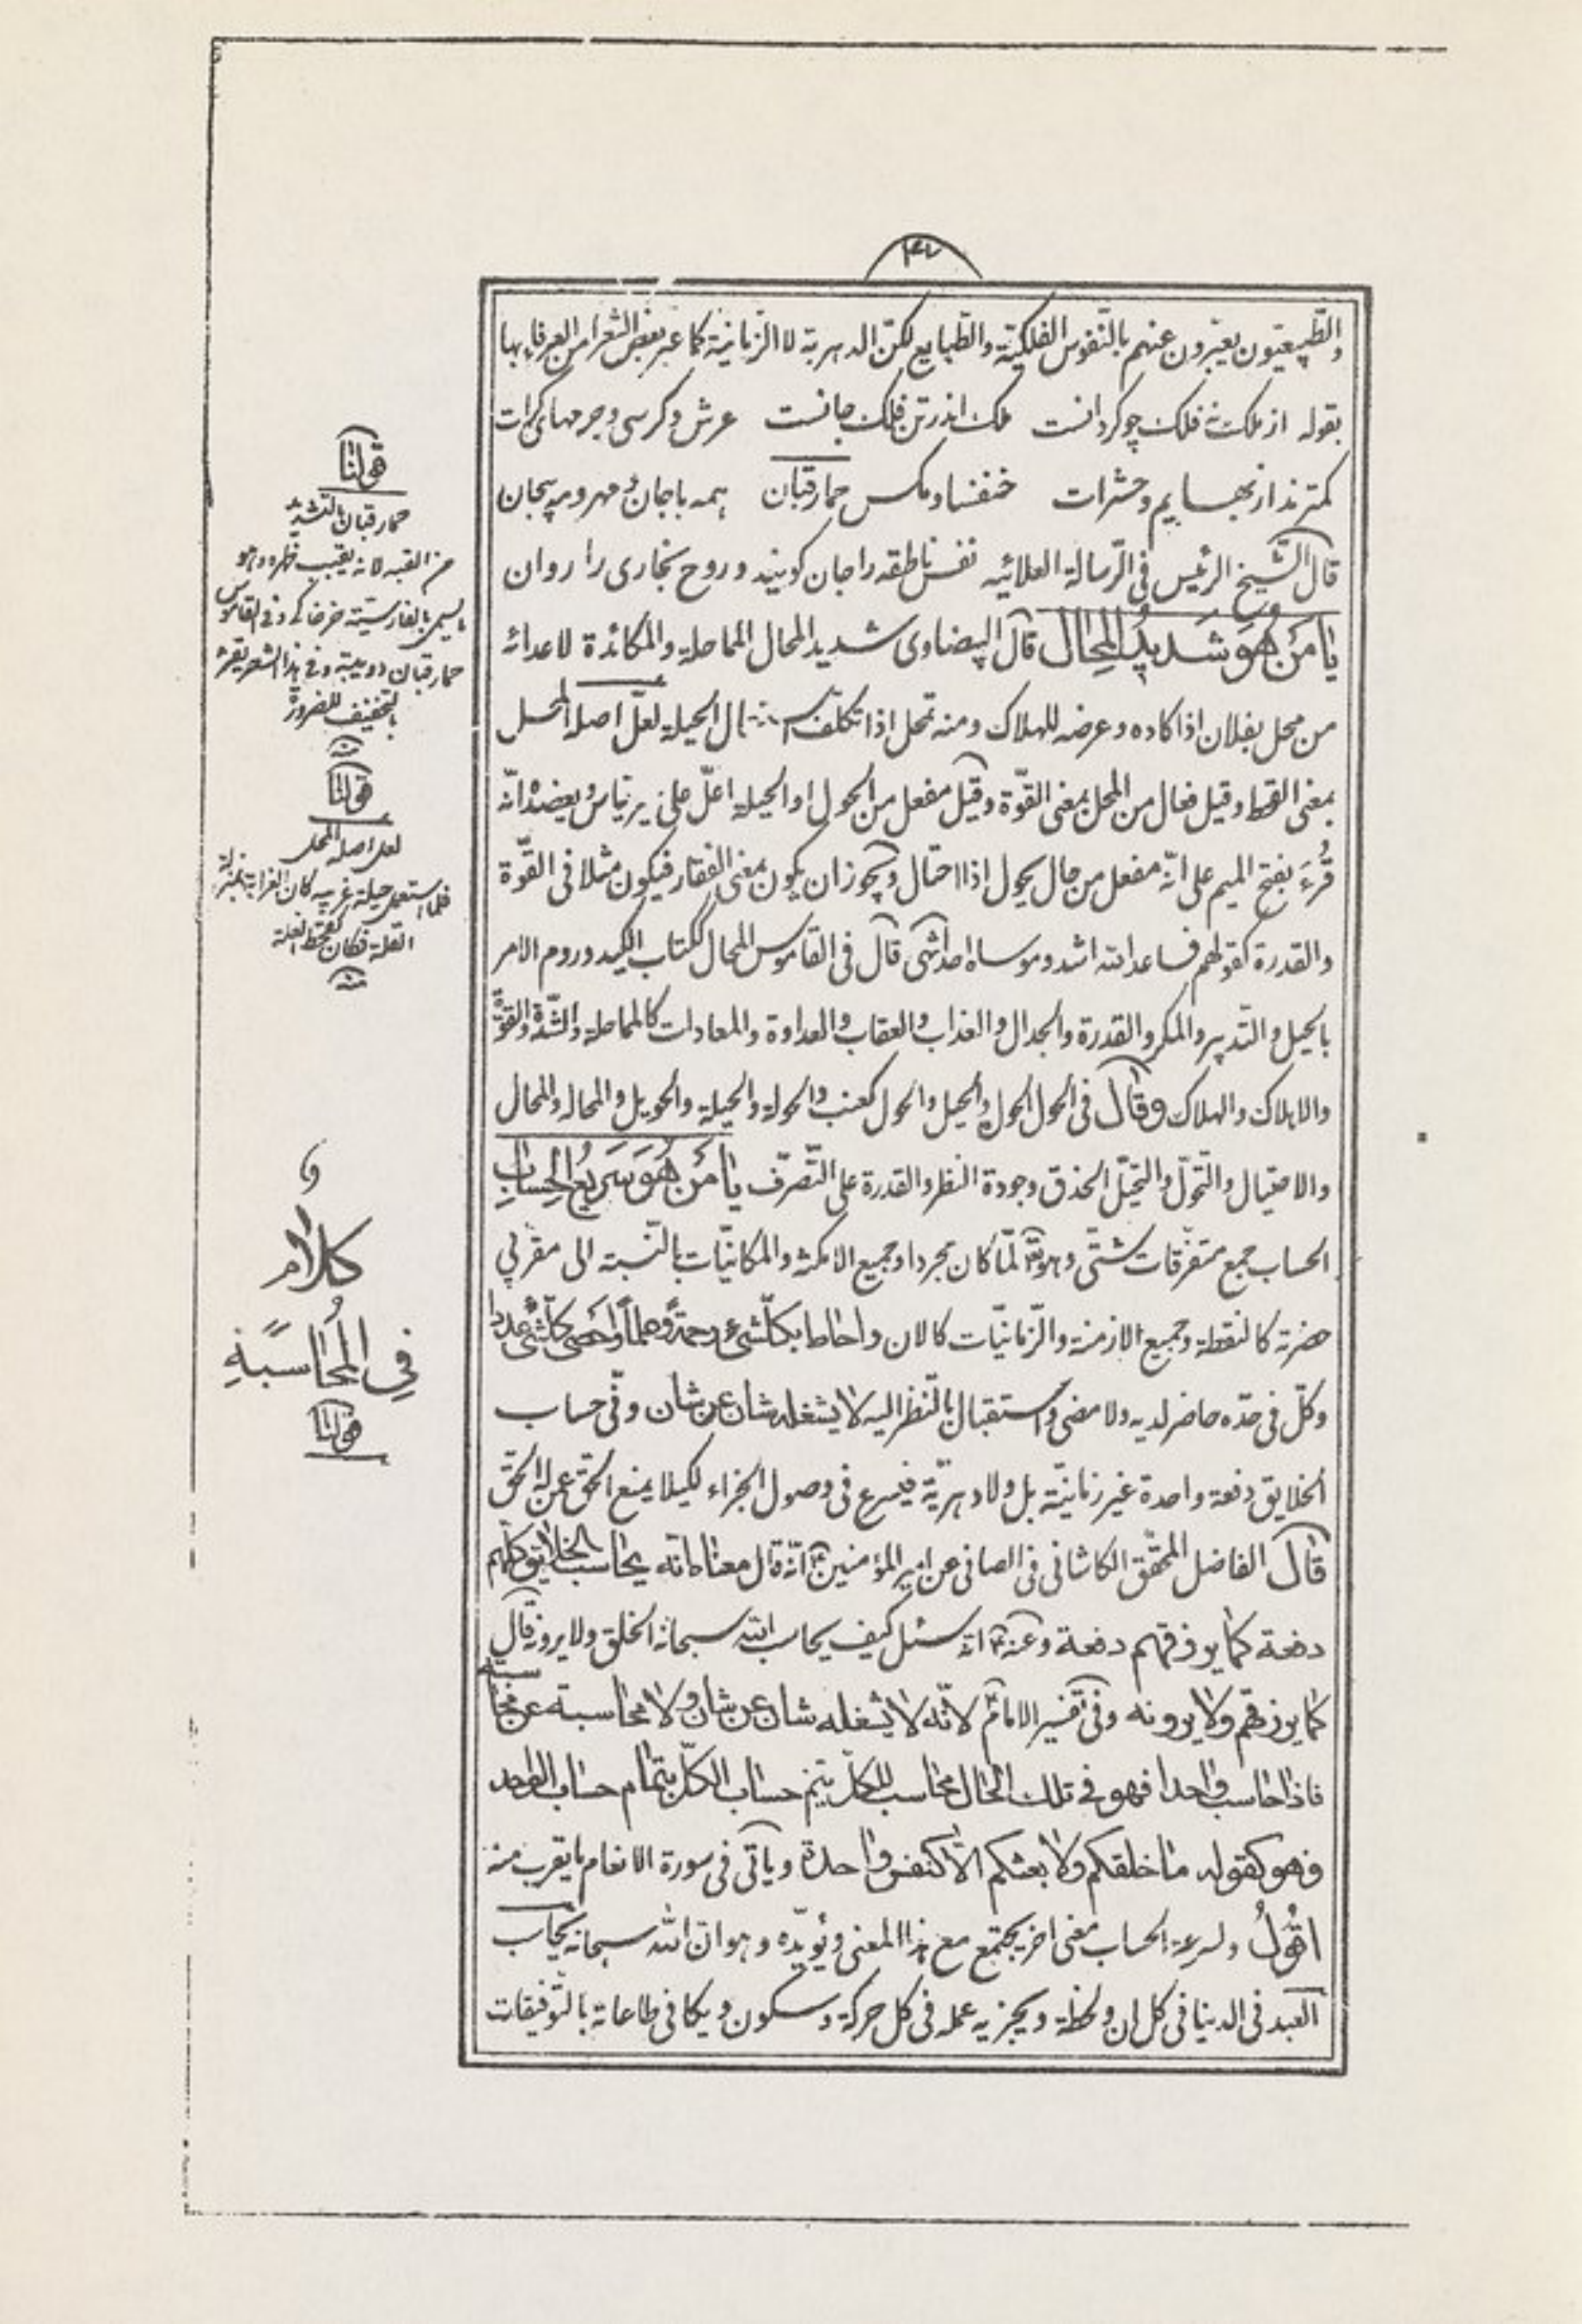 ۴۷
والطّبیعیّون یعبّرون عنهم بالنّفوس الفلکیّة والطّبایع لکن الدهریة لا الزّمانیّة کما عبر بعض الشعرا من العرفا بها
بقوله از ملک نه فلک چو کردانست ملک اندر تن فلک جانست عرش و کرسی و جرمهای کرات
کمترند از بهایم و حشرات خنفسا و مکس حمار قبان همه با جان و مهر و مه بیجان
قال الشیخ الرئیس فی الرّسالة العلائیه نفس ناطقه را جان کویند و روح بخاری را روان
یا مَن هُوَ شَدیدُ المِحال قال البیضاوی شدید المحال المماحلة والمکائدة لاعدائه
من محل بفلان اذا کاده و عرضه للهلاک و منه تمحل اذا تکلف استعمال الحیلة لعلّ اصله المحل
بمعنی القحط و قیل فعال من المحل بمعنی القوّة و قیل مفعل من الحول او الحیلة اعلّ علی غیر قیاس و یعضده انّه
قُرِءَ بفتح المیم علی انّه مفعل من حال یحول اذا احتال و یجوز ان یکون بمعنی الفقار فیکون مثلا فی القوّة
والقدرة کقولهم فساعد الله اشد و موساه احد انتهی قال فی القاموس المحال ککتاب الکید و روم الامر
بالحیل والتّدبیر والمکر والقدرة والجدال والعذاب والعقاب والعداوة والمعادات کالمماحلة والشّدّة والقوّة
والاهلاک والهلاک وقال فی الحول الحول والحیل والحول کعنب والحولة والحیلة والحویل والمحاله والمحال
والاحتیال والتّحوّل والتّحیّل الحذق و جودة النظر والقدرة علی التّصرّف یا مَن هُوَ سَریعُ الحِسابِ
الحساب جمع متفرقات شتّی و هو تعالی لمّا کان مجردا و جمیع الامکنة والمکانیّات بالنّسبة الی مقربی
حضرته کالنقطة و جمیع الازمنة والزّمانیّات کالان و احاط بکلّ شیء رحمةً و علماً و احصی کلّ شیء عددا
و کلّ فی حدّه حاضر لدیه ولا مضی و استقبال بالنّظر الیه لا یشغله شان عن شان و فی حساب
الخلایق دفعة واحدة غیر زمانیّة بل ولا دهریّة فیسرع فی وصول الجزاء لکیلا یمنع الحقّ عمن له الحقّ
قال الفاضل المحقّق الکاشانی فی الصافی عن امیر المؤمنین ع انّه قال معناه انّه یحاسب الخلایق کلهم
دفعة کما یرزقهم دفعة و عنه ع انه سئل کیف یحاسب الله سبحانه الخلق ولا یرونه قال
کما یرزقهم ولا یرونه و فی تفسیر الامام ع لانّه لا یشغله شان عن شان ولا محاسبة عن محاسبة
فاذا حاسب واحدا فهو فی تلک الحال محاسب للکلّ یتم حساب الکلّ بتمام حساب الواحد
و هو کقوله ما خلقکم ولا بعثکم الّا کنفس واحدة و یأتی فی سورة الانعام ما یقرب منه
اقُولُ ولسرعة الحساب معنی اخر یجتمع مع هذا المعنی و یؤیّده و هو انّ الله سبحانه یحاسب
العبد فی الدنیا فی کل ان و لحظة و یجزیه عمله فی کل حرکة و سکون و یکافی طاعاته بالتّوفیقات
قولنا
حمار قبان بالتشدید
من القبه لانه یقبب ظهره و هو
یسمی بالفارسیّة خرخاکی و فی القاموس
حمار قبان دویبة و فی هذا الشعر یقرء
بالتخفیف للضرورة
منه
قولنا
لعل اصله المحل
فلما استعمل حیلة غریبه کان الغرابة بمنزلة
القلة فکان کقحط الغلة
منه
کلام
فِی المُحاسبَةِ
قولنا